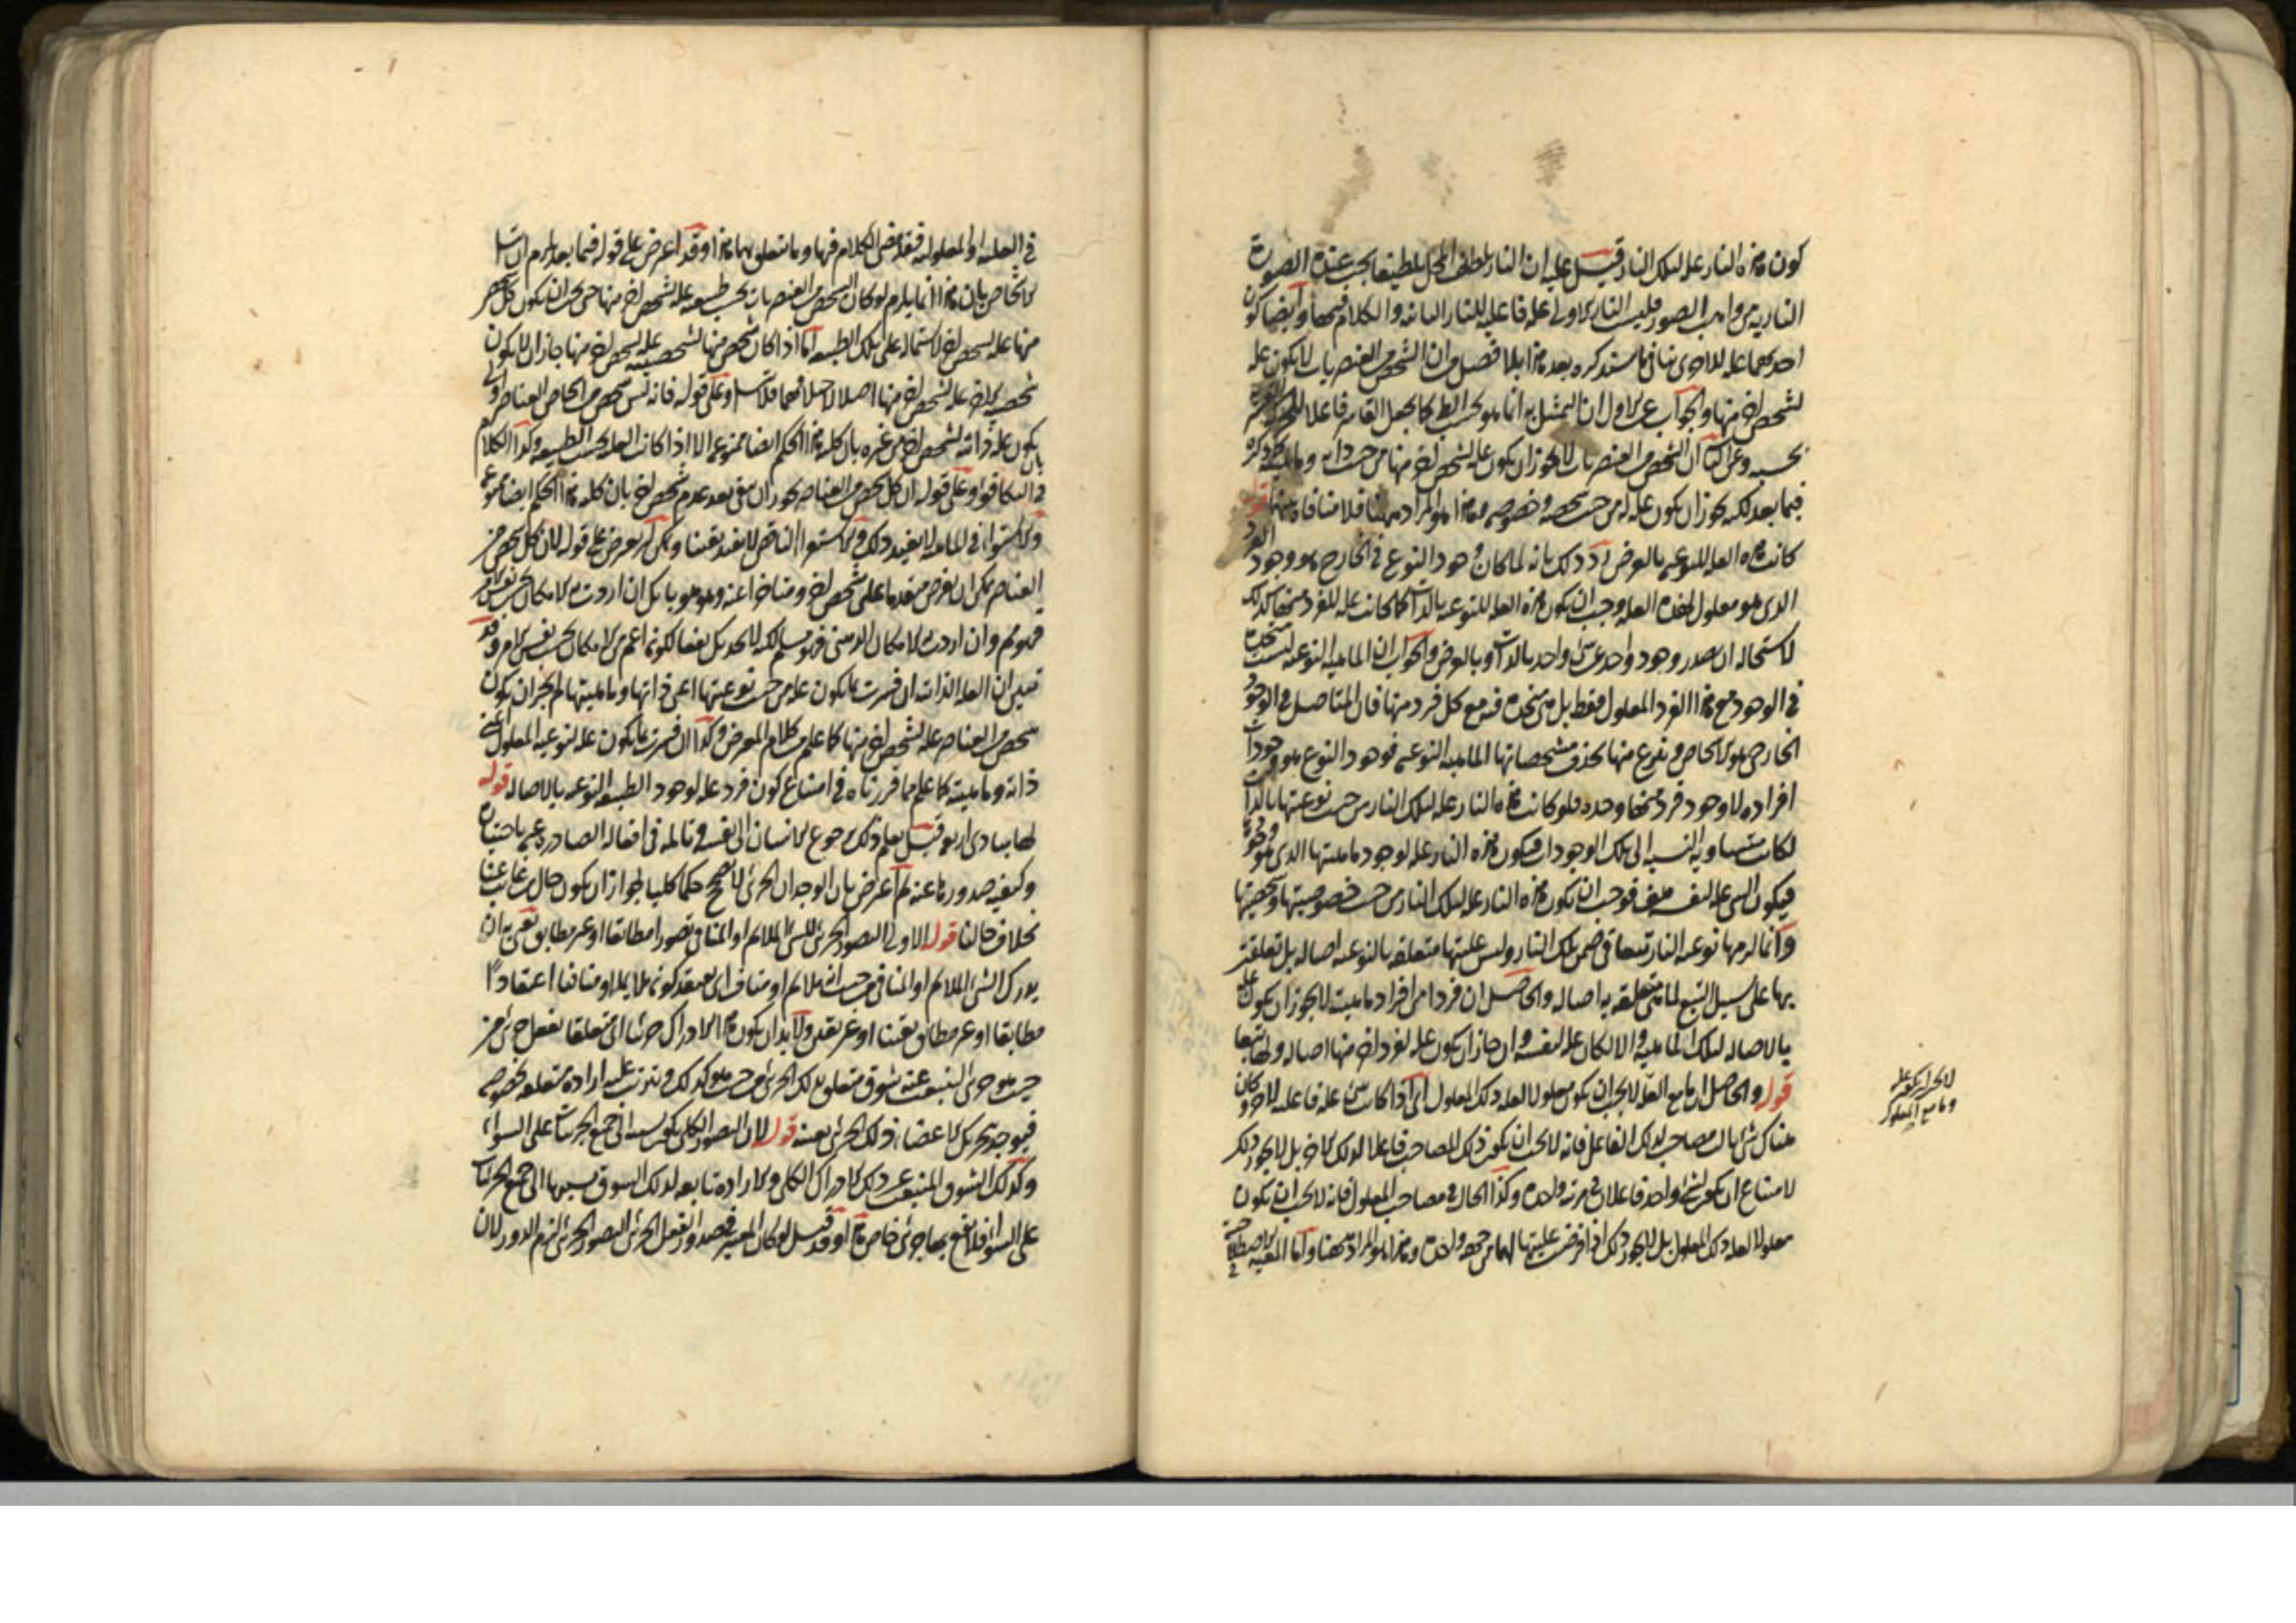 كون هذه النار علة لتلك النار قيل عليه ان النار يلطف المحل تلطيفا يجب عنده الصورة
النارية من واهب الصور فليست النار الاولى علة فاعلية للنار الثانية والكلام فيها وايضا كون
احدهما علة للاخرى ينافي ما سنذكره بعد هذا بلا فصل من ان الشخص من العنصريات لا يكون علة
لشخص اخر منها والجواب عن الاول ان التمثيل به انما هو بحسب الظ كما يجعل القاسر فاعلا للحركة
بحسبه وعن الثاني ان الشخص من العنصريات لا يجوز ان يكون علة لشخص اخر منها من حيث ذاته وماهيته كما ذكره
فيما بعد لكنه يجوز ان يكون علة له من حيث تشخصه وخصوصه وهذا هو المراد ههنا فلا منافاة بينهما قوله
كانت هذه العلة للنوعية بالعرض اذ ذلك بانه لما كان وجود النوع في الخارج هو وجود الفرد
الذي هو معلول لهذه العلة وجب ان يكون هذه العلة للنوعية بالذات كما كانت علة للفرد منها كذلك
لاستحالة ان يصدر وجود واحد عن شئ واحد بالذات وبالعرض والجواب ان الماهية النوعية ليست متحدة
في الوجود مع هذا الفرد المعلول فقط بل هي متحدة فيه مع كل فرد منها فان المتاصل في الوجود
الخارجي هو الاشخاص وينتزع منها بحذف مشخصاتها الماهية النوعية فوجود النوع هو وجودات
افراده لا وجود فرد منها وحده فلو كانت هذه النار علة لتلك النار من حيث نوعيتها بالذات
لكانت متساوية النسبة الى تلك الوجودات فيكون هذه النار علة لوجود ماهيتها الذي هو وجودها
فيكون الشئ علة لنفسه هف فوجب ان يكون هذه النار علة لتلك النار من حيث خصوصيتها وشخصيتها
وانما لزمها نوعية النار تبعا في ضمن تلك النار وليس عليتها متعلقة بالنوعية اصالة بل تعلقت
بها على سبيل التبع لما هي متعلقة به اصالة والحاصل ان فردا من افراد ماهيته لا يجوز ان يكون علة
بالاصالة لتلك الماهية والا لكان علة لنفسه وان جاز ان يكون علة لفرد اخر منها اصالة ولها تبعا
قوله والحاصل ان ما مع العلة لا يجب ان يكون معلولا لعلة ذلك المعلول اي اذا كانت شئ علة فاعلية لاخر وكان
هناك شئ ثالث مصاحب لذلك الفاعل فانه لا يجب ان يكون ذلك المصاحب فاعلا لذلك الاخر بل لا يجوز ذلك
لامتناع ان يكون لشئ واحد فاعلان في مرتبة واحدة وكذا الحال في مصاحب المعلول فانه لا يجب ان يكون
معلولا لعلة ذلك المعلول بل لا يجوز ذلك اذا فرضت عليتها لهما من جهة واحدة وهذا هو المراد ههنا واما المعية الاصطلاحية
لا يجب ان يكون علة
وما مع المعلول
في العلية او المعلولية فقد مضى الكلام فيها وما يتعلق بها هذا وقد اعرض على قوله فيما بعد يلزم ان
الاشخاص بان هذا انما يلزم لو كان الشخص من العنصريات بحسب طبيعته علة لشخص اخر منها حتى يجب ان يكون كل شخص
منها علة لشخص اخر لاشتماله على تلك الطبيعة اما اذا كان شخص منها لشخصيته علة لشخص اخر منها جاز ان لا يكون
شخصية الاخر علة لشخص اخر منها اصلا وعلى قوله فانه ليس شخص من اشخاص العناصر اولى
بان يكون علة ذاتية لشخص اخر من غيره بان كلية هذا الحكم ايضا ممنوعة الا اذا كانت العلة بحسب الطبيعة وكذا الكلام
في التكافؤ وعلى قوله ان كل شخص من العناصر يجوز ان يبقى بعد عدم شخص اخر بان كلية هذا الحكم ايضا ممنوعة
والاستقراء الناقص لا يفيد يقينا ولكن لم يعرض على قوله لان كل شخص من
العناصر يمكن ان يفرض متقدما على شخص اخر ومتاخرا عنه وهو هو بانك ان اردت به الامكان بحسب نفس الامر
فهو مم وان اردت به الامكان الذهني فهو مسلم لكنه لا يجديك نفعا لكونه اعم من الامكان بحسب نفس الامر وقد
تبين ان العلة الذاتية ان فسرت بما يكون علة من حيث نوعيتها اعني ذاتها وماهيتها لم يجز ان يكون
شخص من العناصر علة لشخص اخر منها كما علم من كلام المعرض وكذا ان فسرت بما يكون علة لنوعية المعلول اعني
ذاته وماهيته كما علم مما قررناه في امتناع كون فرد علة لوجود الطبيعة النوعية بالاصالة قوله
لها مبادي اربعة قيل يعلم ذلك برجوع الانسان الى نفسه وتامله في افعاله الصادرة عنه باختياره
وكيفية صدورها عنه ثم اعرض بان الوجدان الجزئي لا يصحح حكما كليا لجواز ان يكون حال من غاب عنا
بخلاف حالنا قوله الاولى التصور الجزئي للشئ الملائم او المنافي تصورا مطابقا او غير مطابق يعني به ان
يدرك الشئ الملائم او المنافي من حيث انه ملائم او مناف اي يعتقد كونه ملايما او منافيا اعتقادا
مطابقا او غير مطابق يقينا او غير يقيني ولا بد ان يكون هذا الادراك جزئيا اي متعلقا بفعل جزئي من
حيث هو جزئي لينبعث عنه شوق متعلق بذلك الجزئي من حيث هو كذلك ويترتب عليه ارادة متعلقة بخصوصه
فيوجد تحريك الاعضاء ذلك الجزئي بعينه قوله لان التصور الكلي يكون نسبته الى جميع الجزئيات على السواء
وكذلك الشوق المنبعث عن ذلك الادراك الكلي والارادة تابعة لذلك الشوق نسبتها الى جميع الجزئيات
على السواء فلا يقع بها جزئي خاص هذا وقد قيل لو كان المعتبر في صدور الفعل الجزئي التصور الجزئي لزم الدور لان